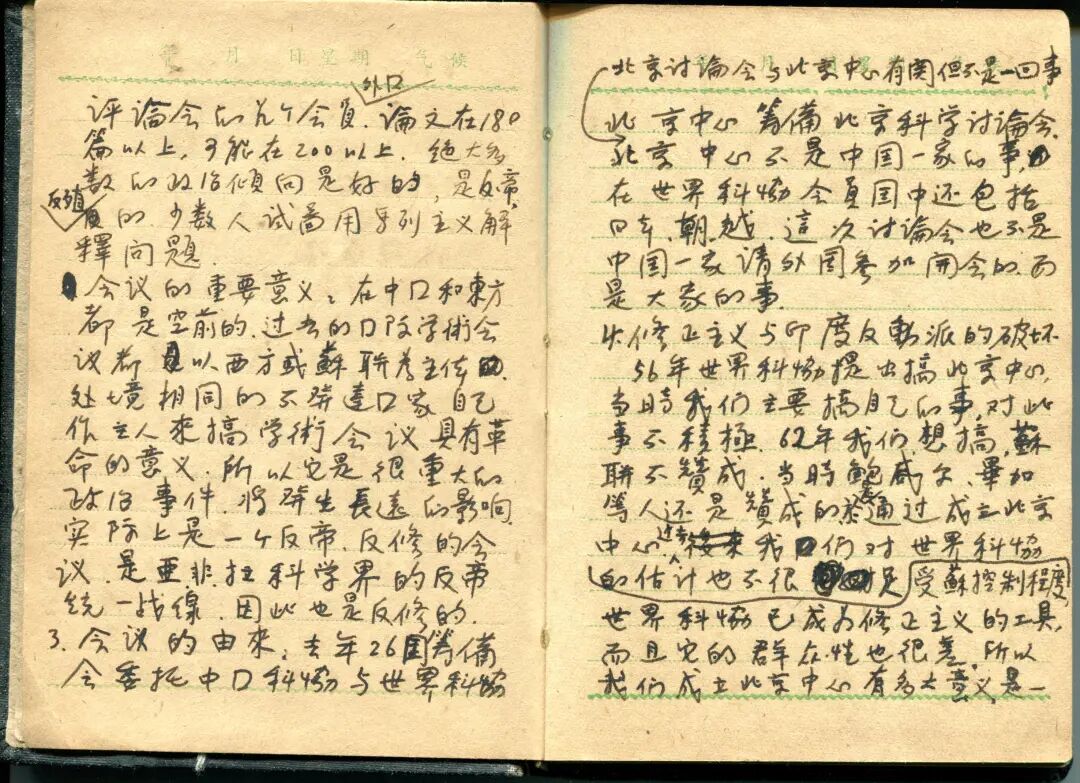 年 月 日 星期 气候
外口
评论会的几个会員. 論文在180
篇以上, 可能在200以上. 绝大多
数的政治傾向是好的, 是反帝,
反殖
的. 少数人试啚用另列主义解
釋问題.
会议的重要意义: 在中口和東方
都是空前的. 过去的口际学術会
议都 以西方或蘇联为主体 .
处境相同的不發達口家自己
作主人来搞学術会议具有革
命的意义. 所以它是很重大的
政治事件. 将發生長遠的影响.
实际上是一个反帝. 反修的会
议. 是亚非拉科学界的反帝
统一战缐. 因此也是反修的.
3. 会议的由来: 去年26国筹備
会委托中口科協与世界科協
北京讨論会与北京中心有関但不是一囬事
北京中心筹備北京科学讨論会.
北京中心不是中国一家的事,
在世界科協会員国中还包括
日本. 朝. 越. 這次讨論会也不是
中国一家请外国参加開会的. 而
是大家的事.
4. 修正主义与印度反動派的破坏
56年世界科協提出搞北京中心,
当時我们主要搞自己的事, 对此
事不積極. 62年我们想搞, 蘇
联不贊成. 当時鮑威尔、畢加
等人还是贊成的. 通过成立北京
中心. 过去我们对世界科協
的估计也不很足 受蘇控制程度
世界科協已成为修正主义的工具,
而且它的群众性也很差. 所以
我们成立北京中心有多大意义是一